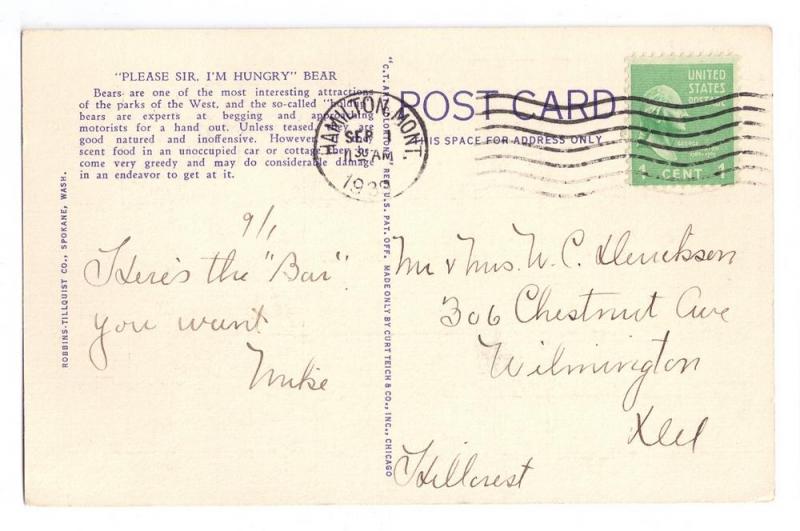 "PLEASE SIR, I'M HUNGRY" BEAR
Bears are one of the most interesting attractions
of the parks of the West, and the so-called "holdup"
bears are experts at begging and approaching
motorists for a hand out. Unless teased, they are
good natured and inoffensive. However, if they
scent food in an unoccupied car or cottage, they be-
come very greedy and may do considerable damage
in an endeavor to get at it.
9/1
Here's the "Bar"
you want
Mike
ROBBINS-TILLQUIST CO., SPOKANE, WASH.
"C.T. ART-COLORTONE" REG. U.S. PAT. OFF. MADE ONLY BY CURT TEICH & CO., INC., CHICAGO
HAMILTON, MONT.
SEP 1
AM
POST CARD
THIS SPACE FOR ADDRESS ONLY
UNITED
STATES
POSTAGE
GEORGE
1 CENT 1
Mr & Mrs. W. C. Derickson
306 Chestnut Ave
Wilmington
Del
Hillcrest